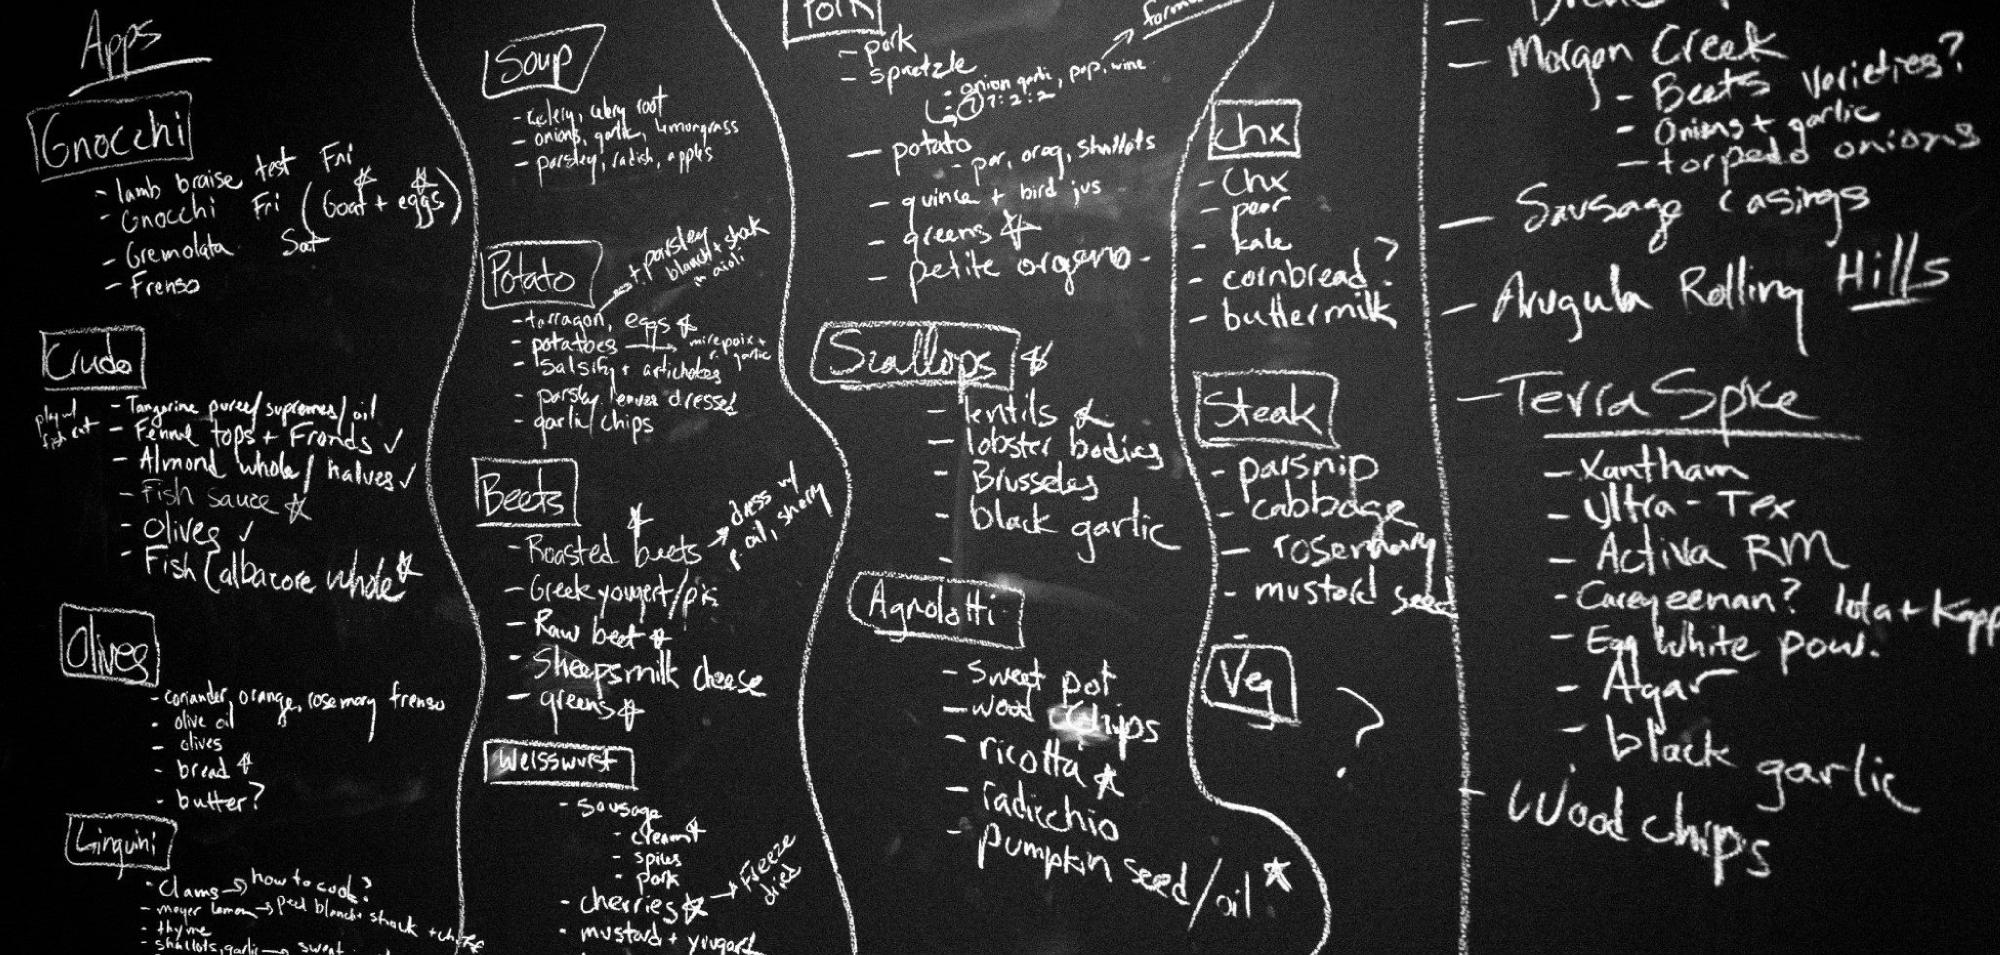 Apps
Gnocchi
- lamb braise test Fri
- Gnocchi Fri (Goat + eggs)
- Gremolata Sat
- Frenso
Crudo
- Tangerine puree/ supremes/ oil
- Fennel tops + Fronds ✓
- Almond whole/ halves ✓
- Fish sauce ☆
- Olives ✓
- Fish (albacore whole ☆
Olives
- coriander, orange, rosemary frenso
- olive oil
- olives
- bread ☆
- butter?
Linguini
- Clams → how to cook?
- meyer lemon → peel blanch + shock
- thyme
- shallots, garlic → sweat
Soup
- celery, celery root
- onions, garlic, lemongrass
- parsley, radish, apples
Potato
+ parsley
blanch + shock
in aioli
- tarragon, eggs ☆
- potatoes → mirepoix +
garlic
- Salsify + artichokes
- parsley leaves dressed
- garlic/ chips
Beets
- Roasted beets ☆ → dress w/
oil, sherry
- Greek yougert/
- Raw beet ☆
- Sheepsmilk cheese
- greens ☆
Weisswurst
- sausage
- cream ☆
- spices
- pork
- cherries ☆ → Freeze
dried
- mustard + yougart
Pork
- pork
- spaetzle
- onion garlic, pep, wine
- potato
- quince + bird jus
- greens ☆
- petite oregano
Scallops ☆
- lentils ☆
- lobster bodies
- Brusseles
- black garlic
-
Agnolotti
- sweet pot
- wood chips
- ricotta ☆
- radicchio
- pumpkin seed/oil ☆
Chx
- Chx
- pear
- kale
- cornbread?
- buttermilk
Steak
- parsnip
- cabbage
- rosemary
- mustard seed
-
Veg
?
- Morgan Creek
- Beets varieties?
- Onions + garlic
- torpedo onions
- Sausage casings
- Arugula Rolling Hills
- Terra Spice
- Xantham
- Ultra-Tex
- Activa RM
- Careyeenan? Iota + Kapp
- Egg White pow.
- Agar
- black garlic
- Wood chips